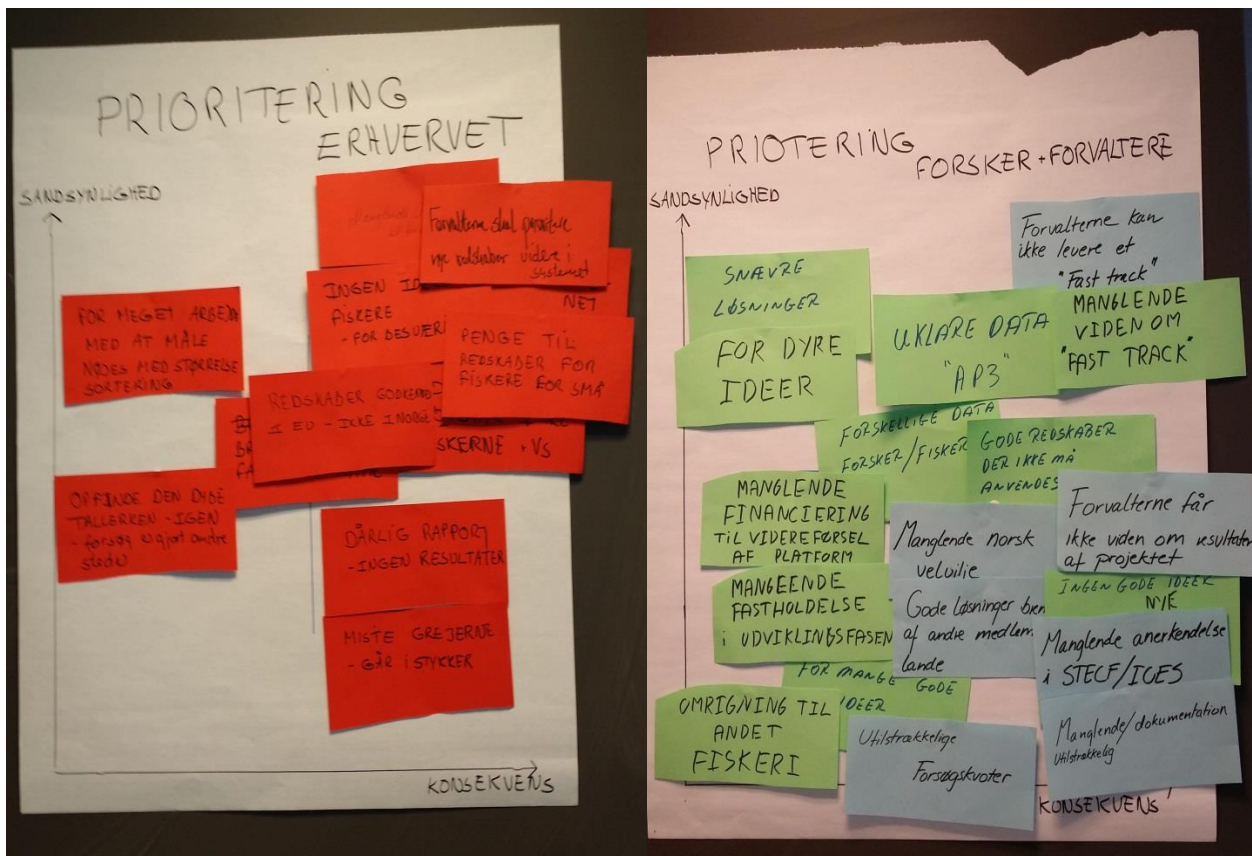 PRIORITERING
ERHVERVET
SANDSYNLIGHED
Forvalterne skal
nye redskaber videre i
systemet
INGEN
FISKERE
- FOR
NET
FOR MEGET
MED AT MÅLE
MED STØRRELSE
SORTERING
PENGE TIL
REDSKABER FOR
FISKERE FOR SMÅ
REDSKABER
I EU - IKKE I NORGE
SKERNE + VS
OPFINDE DEN DYBE
TALLERKEN - IGEN
- forsøg
DÅRLIG RAPPORT
- INGEN RESULTATER
MISTE GREJERNE
- GÅR I STYKKER
KONSEKVENS
PRIOTERING
FORSKER + FORVALTERE
SANDSYNLIGHED
Forvalterne kan
ikke levere et
"Fast track"
SNÆVRE
LØSNINGER
UKLARE DATA
"AP3"
MANGLENDE
VIDEN OM
"FAST TRACK"
FOR DYRE
IDEER
FORSKELLIGE DATA
FORSKER/FISKER
GODE REDSKABER
DER IKKE MÅ
ANVENDES
MANGLENDE
FINANCIERING
TIL VIDEREFØRSEL
AF PLATFORM
Manglende norsk
velvilie
Forvalterne får
ikke viden om resultater
af projektet
MANGEENDE
FASTHOLDELSE
i UDVIKLINGSFASEN
Gode løsninger
af andre medlem
lande
INGEN GODE IDEER
NYE
Manglende anerkendelse
i STECF/ICES
FOR MANGE GODE
IDEER
OMRIGNING TIL
ANDET
FISKERI
Utilstrækkelige
Forsøgskvoter
Manglende/dokumentation
Utilstrækkelig
KONSEKVENS